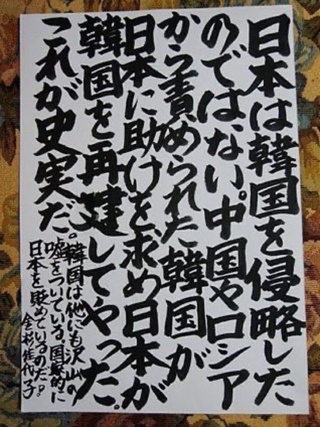 日本は韓国を侵略した
のではない。中国やロシア
から責められた韓国が
日本に助けを求め日本が
韓国を再建してやった。
これが史実だ。韓国は他にも沢山の
嘘をついている。国際的に
日本を貶めているのだ。
金杉佳代子